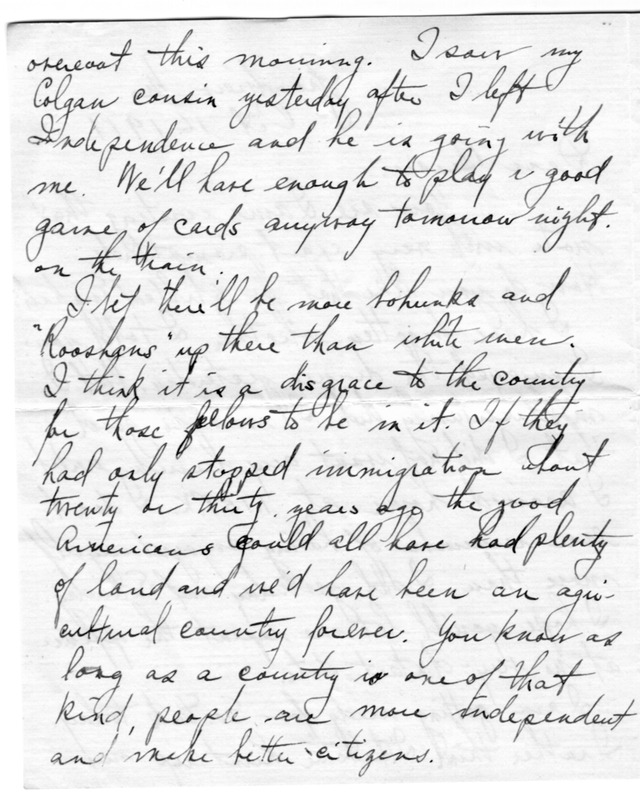 overcoat this morning. I saw my
Colgan cousin yesterday after I left
Independence and he is going with
me. We'll have enough to play a good
game of cards anyway tomorrow night.
on the train.
I bet there'll be more bohunks and
"Rooshans" up there than white men.
I think it is a disgrace to the country
for those fellows to be in it. If they
had only stopped immigration about
twenty or thirty years ago the good
Americans could all have had plenty
of land and we'd have been an agri-
cultural country forever. You know as
long as a country is one of that
kind, people are more independent
and make better citizens.